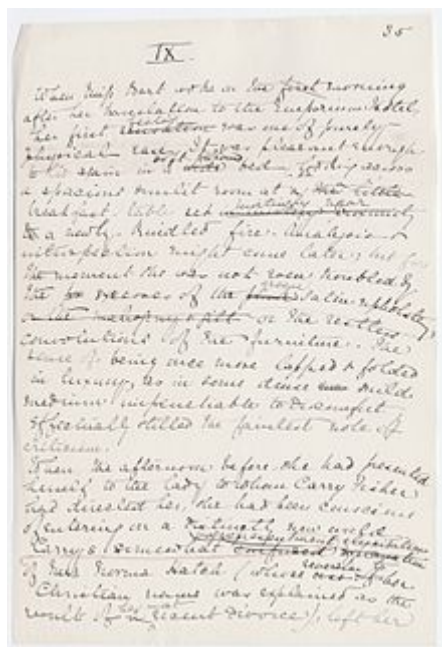 35
IX.
When Miss Bart woke on the first morning
after her translation to the Emporium Hotel,
her first feeling sensation was one of purely
physical
to in a soft bed, looking across
a spacious sunlit room at a
breakfast-table set invitingly near
to a newly-kindled fire. Analysis &
introspection might come later; but for
the moment she was not even troubled by
the excesses of the upholstery
or the restless
convolutions of the furniture. The
sense of being once more lapped & folded
in luxury, as in some dense mild
medium impenetrable to discomfort,
effectually stilled the faintest note of
criticism.
When, the afternoon before, she had presented
herself to the lady to whom Carry Fisher
had directed her, she had been conscious
of entering on a distinctly new world.
Carry's somewhat
of Mrs Norma Hatch (whose reversion to her
Christian name was explained as the
result of her recent divorce), left her